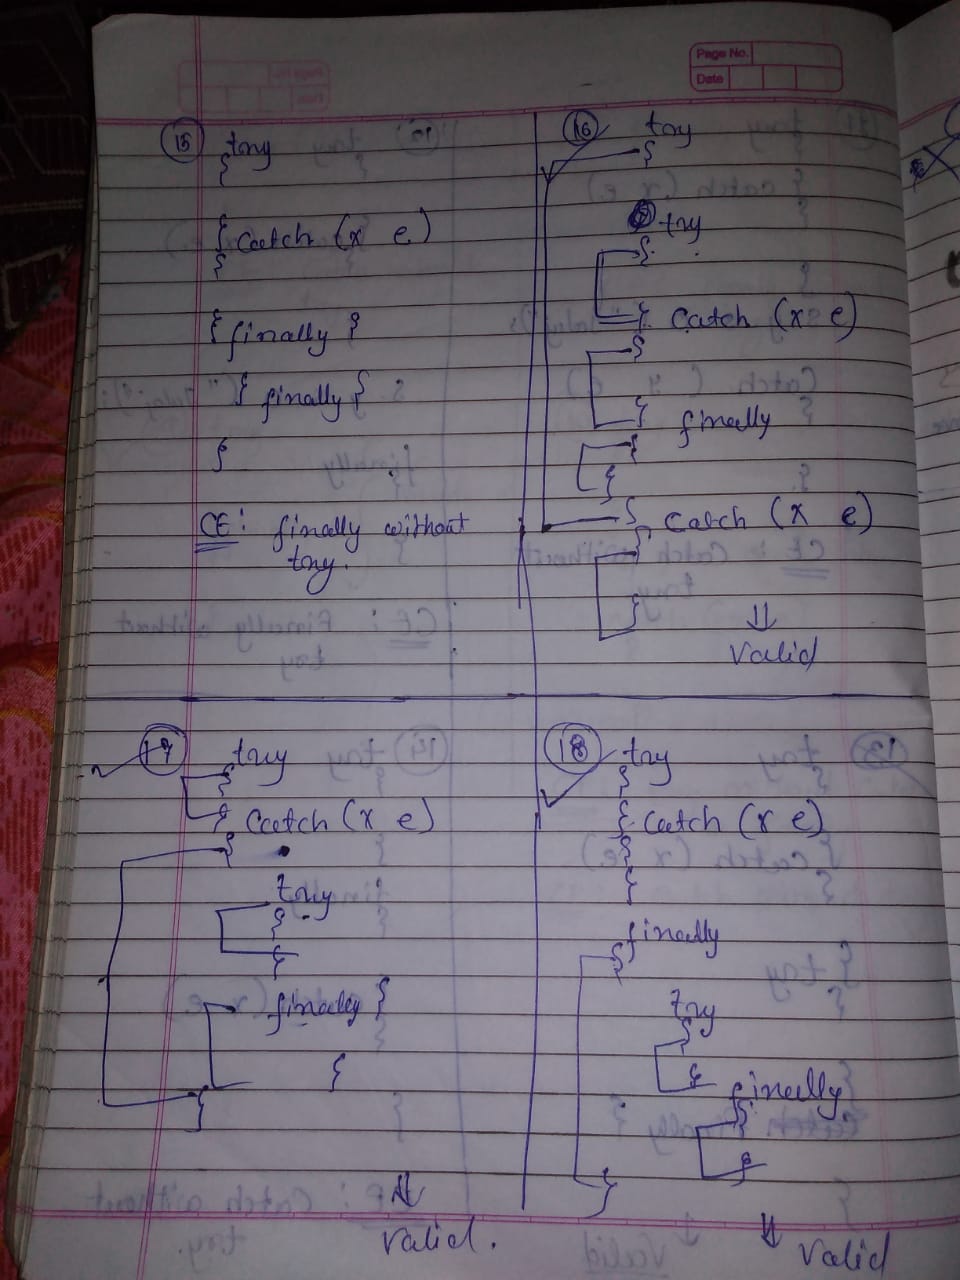 Page No.
Date
15 try
{
} Catch (x e)
{
} finally {
} finally {
}
CE: finally without
try.
16 try
{
try
{
} Catch (x e)
{
} finally
{
}
} Catch (x e)
{
}
⇓
Valid
17 try
{
} Catch (x e)
{
try
{
}
finally {
}
}
⇓
Valid.
18 try
{
} Catch (x e)
{
}
finally
{
try
{
} finally
{
}
}
⇓
Valid